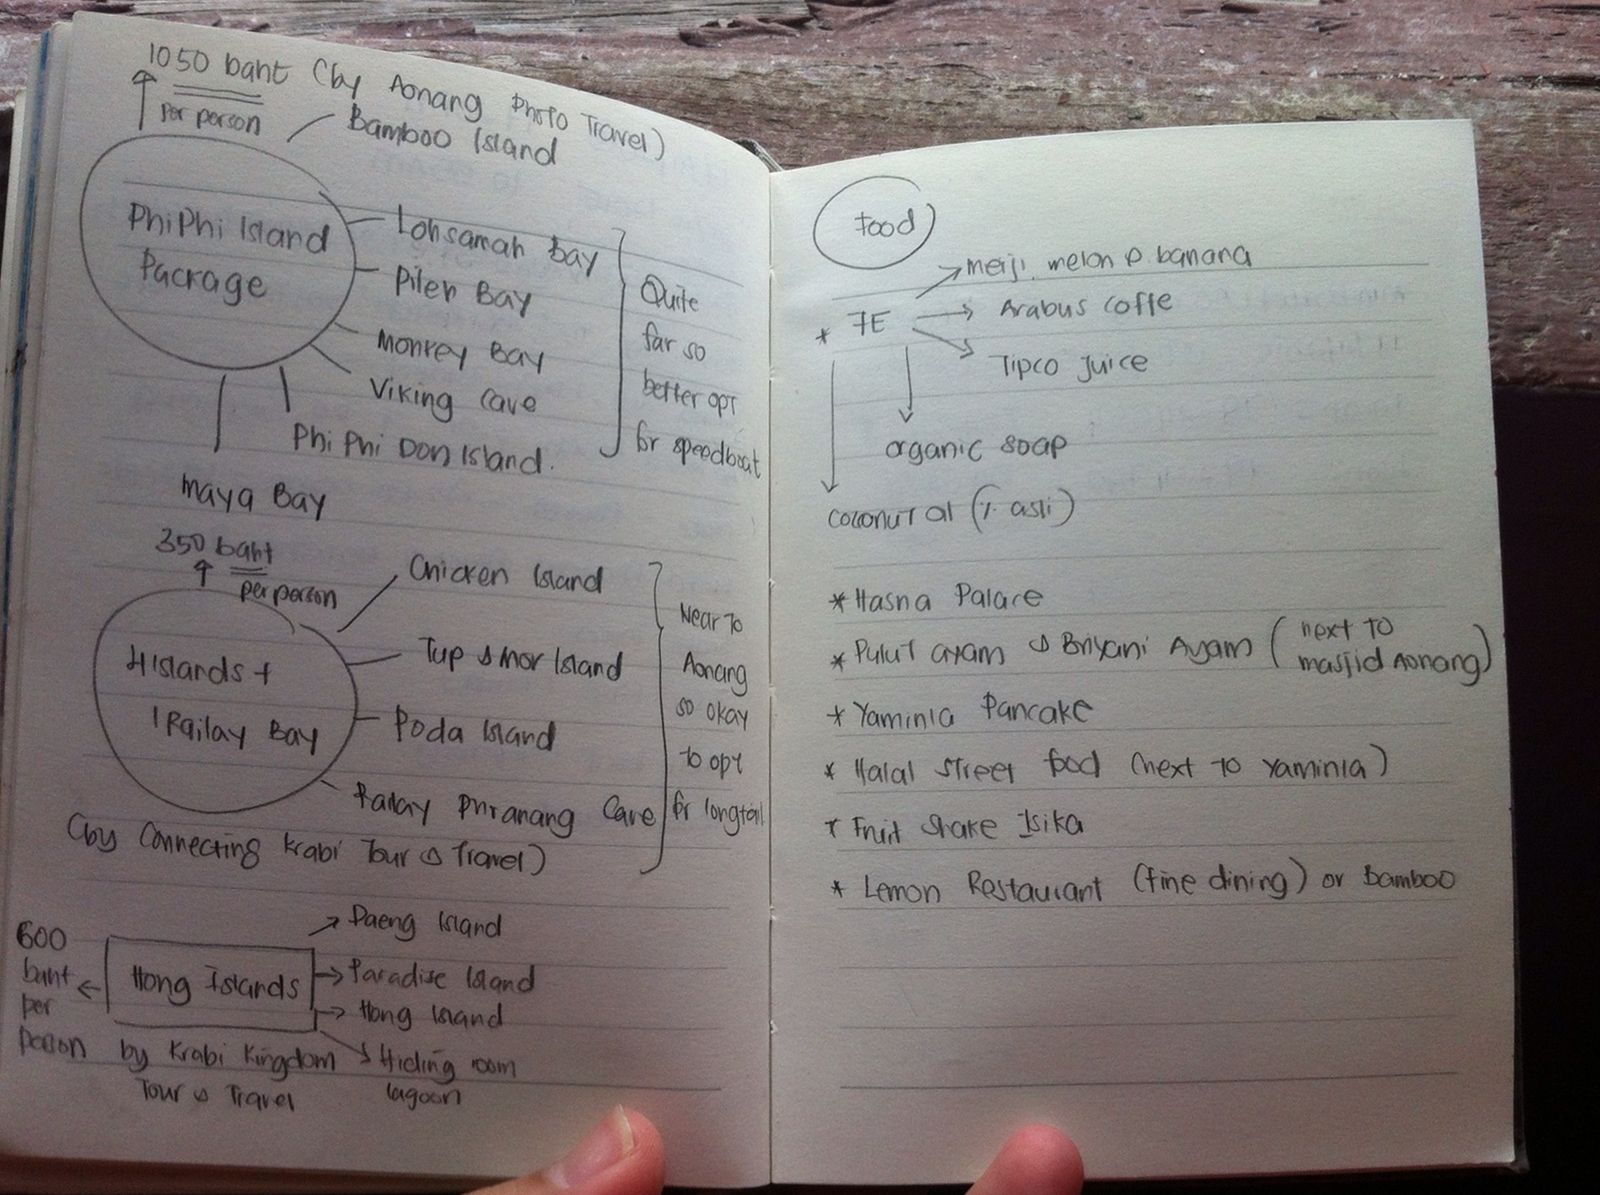 1050 baht (by Aonang Photo Travel)
per person
Bamboo Island
PhiPhi Island
Package
Lohsamah Bay
Pileh Bay
Monkey Bay
Viking Cave
Phi Phi Don Island.
Maya Bay
Quite
far so
better opt
for speedboat
350 baht
per person
Chicken Island
4 Islands +
1 Railay Bay
Tup & Mor Island
Poda Island
Railay Phranang Cave
(by Connecting Krabi Tour & Travel)
Near to
Aonang
so okay
to opt
for longtail
600
baht
per
person
Hong Islands
Daeng Island
Paradise Island
Hong Island
Hiding room
lagoon
by Krabi Kingdom
Tour & Travel
Food
* 7E
meiji melon & banana
Arabus coffe
Tipco Juice
organic soap
coconut oil ( asli)
* Hasna Palace
* Pulut ayam & Briyani Ayam (next to
masjid Aonang)
* Yaminia Pancake
* Halal street food (next to Yaminia)
* Fruit shake Isika
* Lemon Restaurant (fine dining) or Bamboo